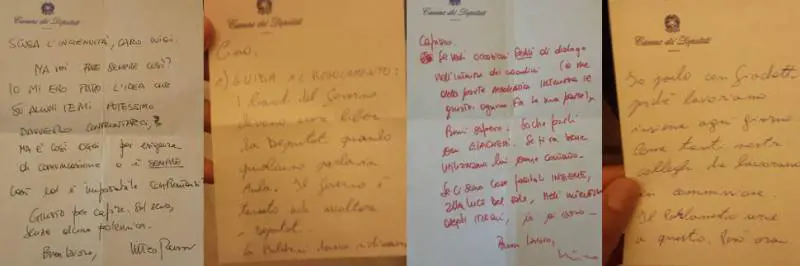 Camera dei Deputati
SCUSA L'INGENUITÀ, CARO LUIGI.
MA VOI FATE SEMPRE COSÌ?
IO MI ERO FATTO L'IDEA CHE
SU ALCUNI TEMI POTESSIMO
DAVVERO CONFRONTARCI,
MA È COSÌ OGNI per esigenze
di comunicazione o è SEMPRE
così ed è impossibile confrontarsi?
Giusto per capire. Sul serio,
senza alcuna polemica.
Buon lavoro, Matteo Renzi
Camera dei Deputati
Ciao.
1) GUIDA AL REGOLAMENTO:
I banchi del Governo
devono essere liberi
da Deputati quando
qualcuno parla in
Aula. Il Governo è
tenuto ad ascoltare
i deputati.
Camera dei Deputati
Capisco.
Se vedi occasioni SERIE di dialogo
nell'interesse dei cittadini (e me
della parte mediatica interessa se
giusto, ognuno fa la sua parte),
fammi sapere.
con GIACHETTI. Se ti va bene
utilizziamo lui come canale.
Se ci sono cose fattibili INSIEME,
alla luce del sole, nell'interesse
degli ITALIANI, io ci sono
Buon lavoro,
Camera dei Deputati
Io parlo con Giachetti
perché lavoriamo
insieme ogni giorno
Come tanti nostri
colleghi che lavorano
in commissione.
Il Parlamento serve
a questo. Però ora